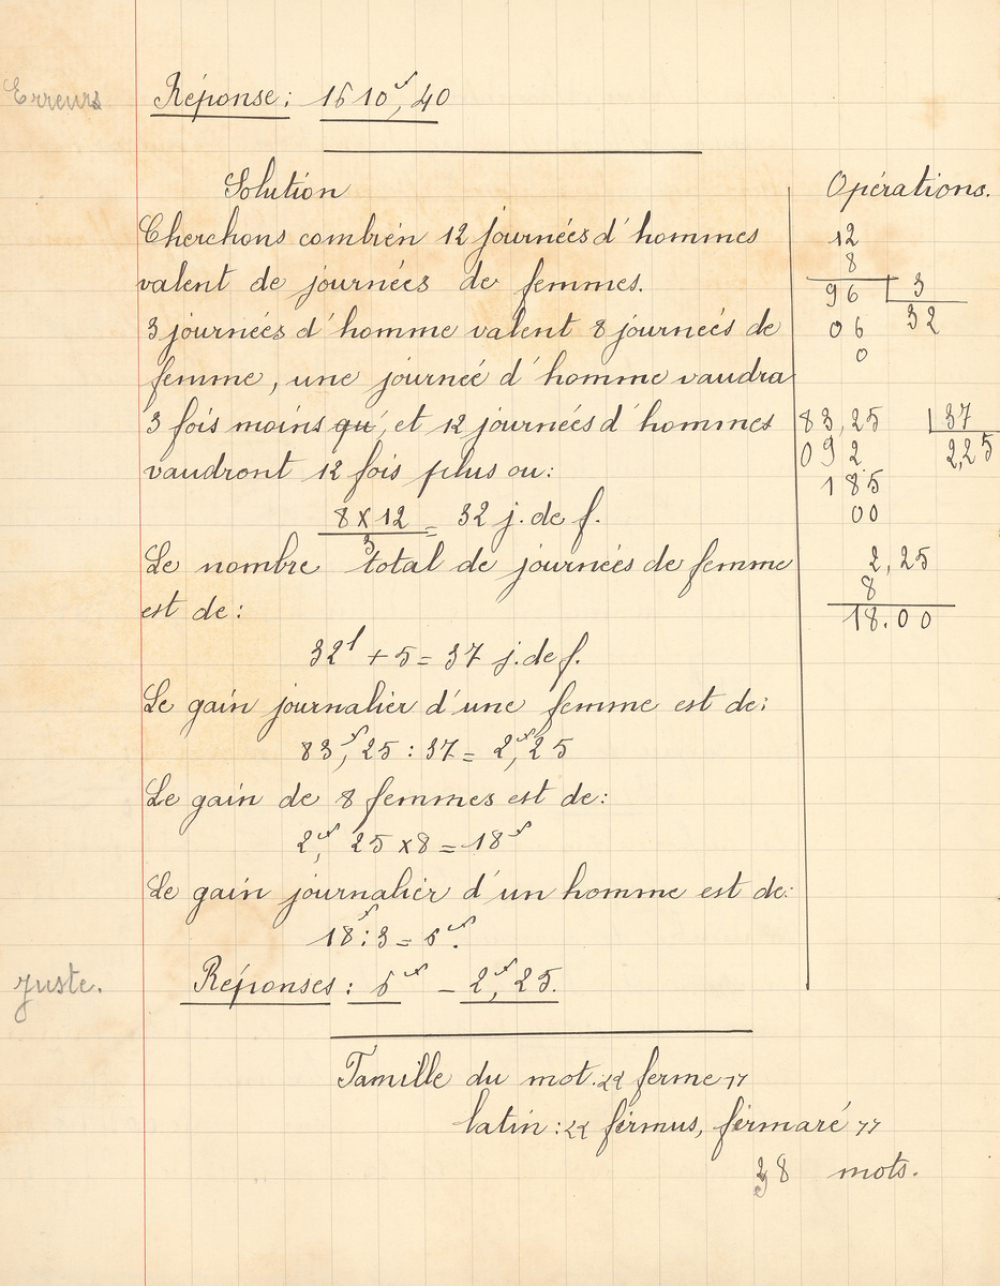 Erreurs
Réponse : 1610ᶠ, 40
Solution
Cherchons combien 12 journées d'hommes
valent de journées de femmes.
3 journées d'homme valent 8 journées de
femme, une journée d'homme vaudra
3 fois moins qu', et 12 journées d'hommes
vaudront 12 fois plus ou :
8 x 12 / 3 = 32 j. de f.
Le nombre total de journées de femme
est de :
32ʲ + 5 = 37 j. de f.
Le gain journalier d'une femme est de :
83ᶠ, 25 : 37 = 2ᶠ, 25
Le gain de 8 femmes est de :
2ᶠ, 25 x 8 = 18ᶠ
Le gain journalier d'un homme est de :
18ᶠ : 3 = 6ᶠ.
juste.
Réponses : 6ᶠ - 2ᶠ, 25.
Opérations.
12
8
96 3
06 32
0
83,25 37
092 2,25
185
00
2,25
8
18.00
Famille du mot. « ferme »
latin : « firmus, firmaré »
38 mots.